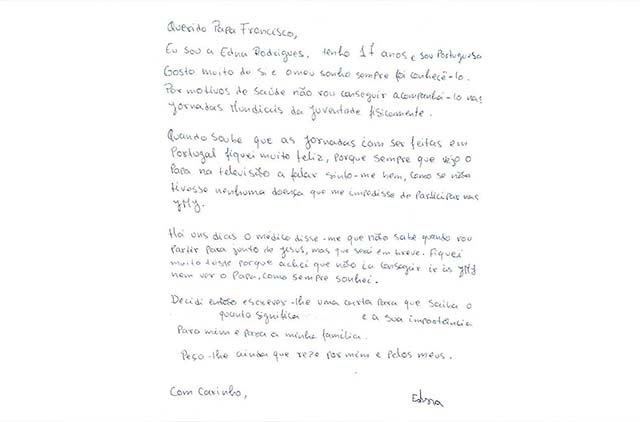 Querido Papa Francisco,
Eu sou a Edna Rodrigues, tenho 17 anos e sou Portuguesa
Gosto muito de si e o meu sonho sempre foi conhecê-lo.
Por motivos de saúde não vou conseguir acompanhá-lo nas
Jornadas Mundiais da Juventude fisicamente.
Quando soube que as Jornadas iam ser feitas em
Portugal fiquei muito feliz, porque sempre que vejo o
Papa na televisão a falar sinto-me bem, como se não
tivesse nenhuma doença que me impedisse de participar nas
JMJ.
Há uns dias o médico disse-me que não sabe quando vou
partir para junto de Jesus, mas que será em breve. Fiquei
muito triste porque achei que não ia conseguir ir às JMJ
nem ver o Papa, como sempre sonhei.
Decidi então escrever-lhe uma carta para que saiba o
quanto significa e a sua importância
Para mim e para a minha família.
Peço-lhe ainda que reze por mim e pelos meus.
Com Carinho,
Edna